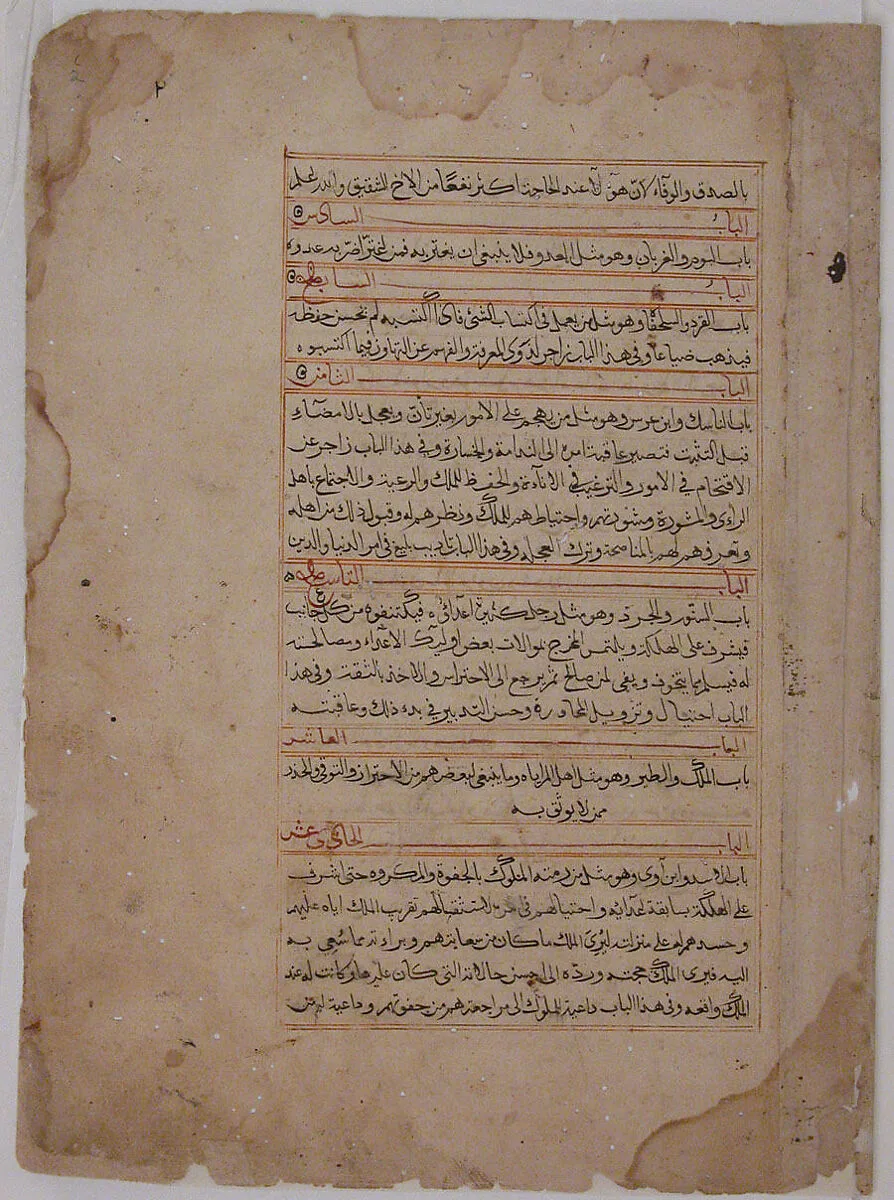 ٢
بالصدق والوفاء لأنّ هؤلآء عند الحاجت اكثر نفعًا من الاخ الشقيق والله اعلم
الباب السادس
باب البوم والغربان وهو مثل العدو فلا ينبغي ان يغتر به فمن اغترّ اضرّ به عدوه
الباب السابع
باب القرد والسلحفاة وهو مثل من يعمل في اكتساب الشئ فاذا اكتسبه لم يحسن حفظه
فيذهب ضياعا وفي هذا الباب زاجر لذوى المعرفة والفهم عن التهاون فيما اكتسبوه
الباب الثامن
باب الناسك وابن عرس وهو مثل من يهجم على الامور بغير تأنّ ويعجل بالامضآء
قبل التثبت فتصير عاقبة امره الى الندامة والخسارة وفي هذا الباب زاجر عن
الاقتحام في الامور والترغيب في الاناءة والحفظ للملك والرعية والاجتماع باهل
الراى والمشورة ومشورتهم واحتياطهم للملك ونظرهم له وقبول ذلك من اهله
وتعرفهم لهم بالمناصحة وترك العجله وفي هذا الباب تاديب بليغ في امر الدنيا والدين
الباب التاسع
باب السنور والجرذ وهو مثل رجل كثيرة اعدائه فيكتنفوه من كل جانب
فيشرف على الهلكة ويلتمس المخرج بموالات بعض اوليك الاعداء ومصالحته
له فيسلم مما يتخوف ويفى لمن صالح ثم يرجع الى الاحتراس والاخذ بالثقة وفي هذا
الباب احتيال وتزويل للمحاورة وحسن التدبير في بدء ذلك وعاقبته
الباب العاشر
باب الملك والطير وهو مثل اهل المراياه وما ينبغي لبعضهم من الاحتراز والتوقي والحذر
ممن لا يوثق به
الباب الحادى عشر
باب الاسد وابن آوى وهو مثل من رمته الملوك بالجفوة والمكروه حتى اشرف
على الهلكة بسابقة اعدايه واحتيالهم في استثقالهم تقريب الملك اياه عليهم
وحسدهم له على منزلته ليُرىَ الملك ما كان من سعايتهم وبراءته مما سُعِي به
اليه فيرى الملك حجته وردّه الى احسن حالاته التى كان عليها وكانت له عند
الملك واقعه وفي هذا الباب داعية الملوك الى مراجعة من جفوتهم وداعية لهم من